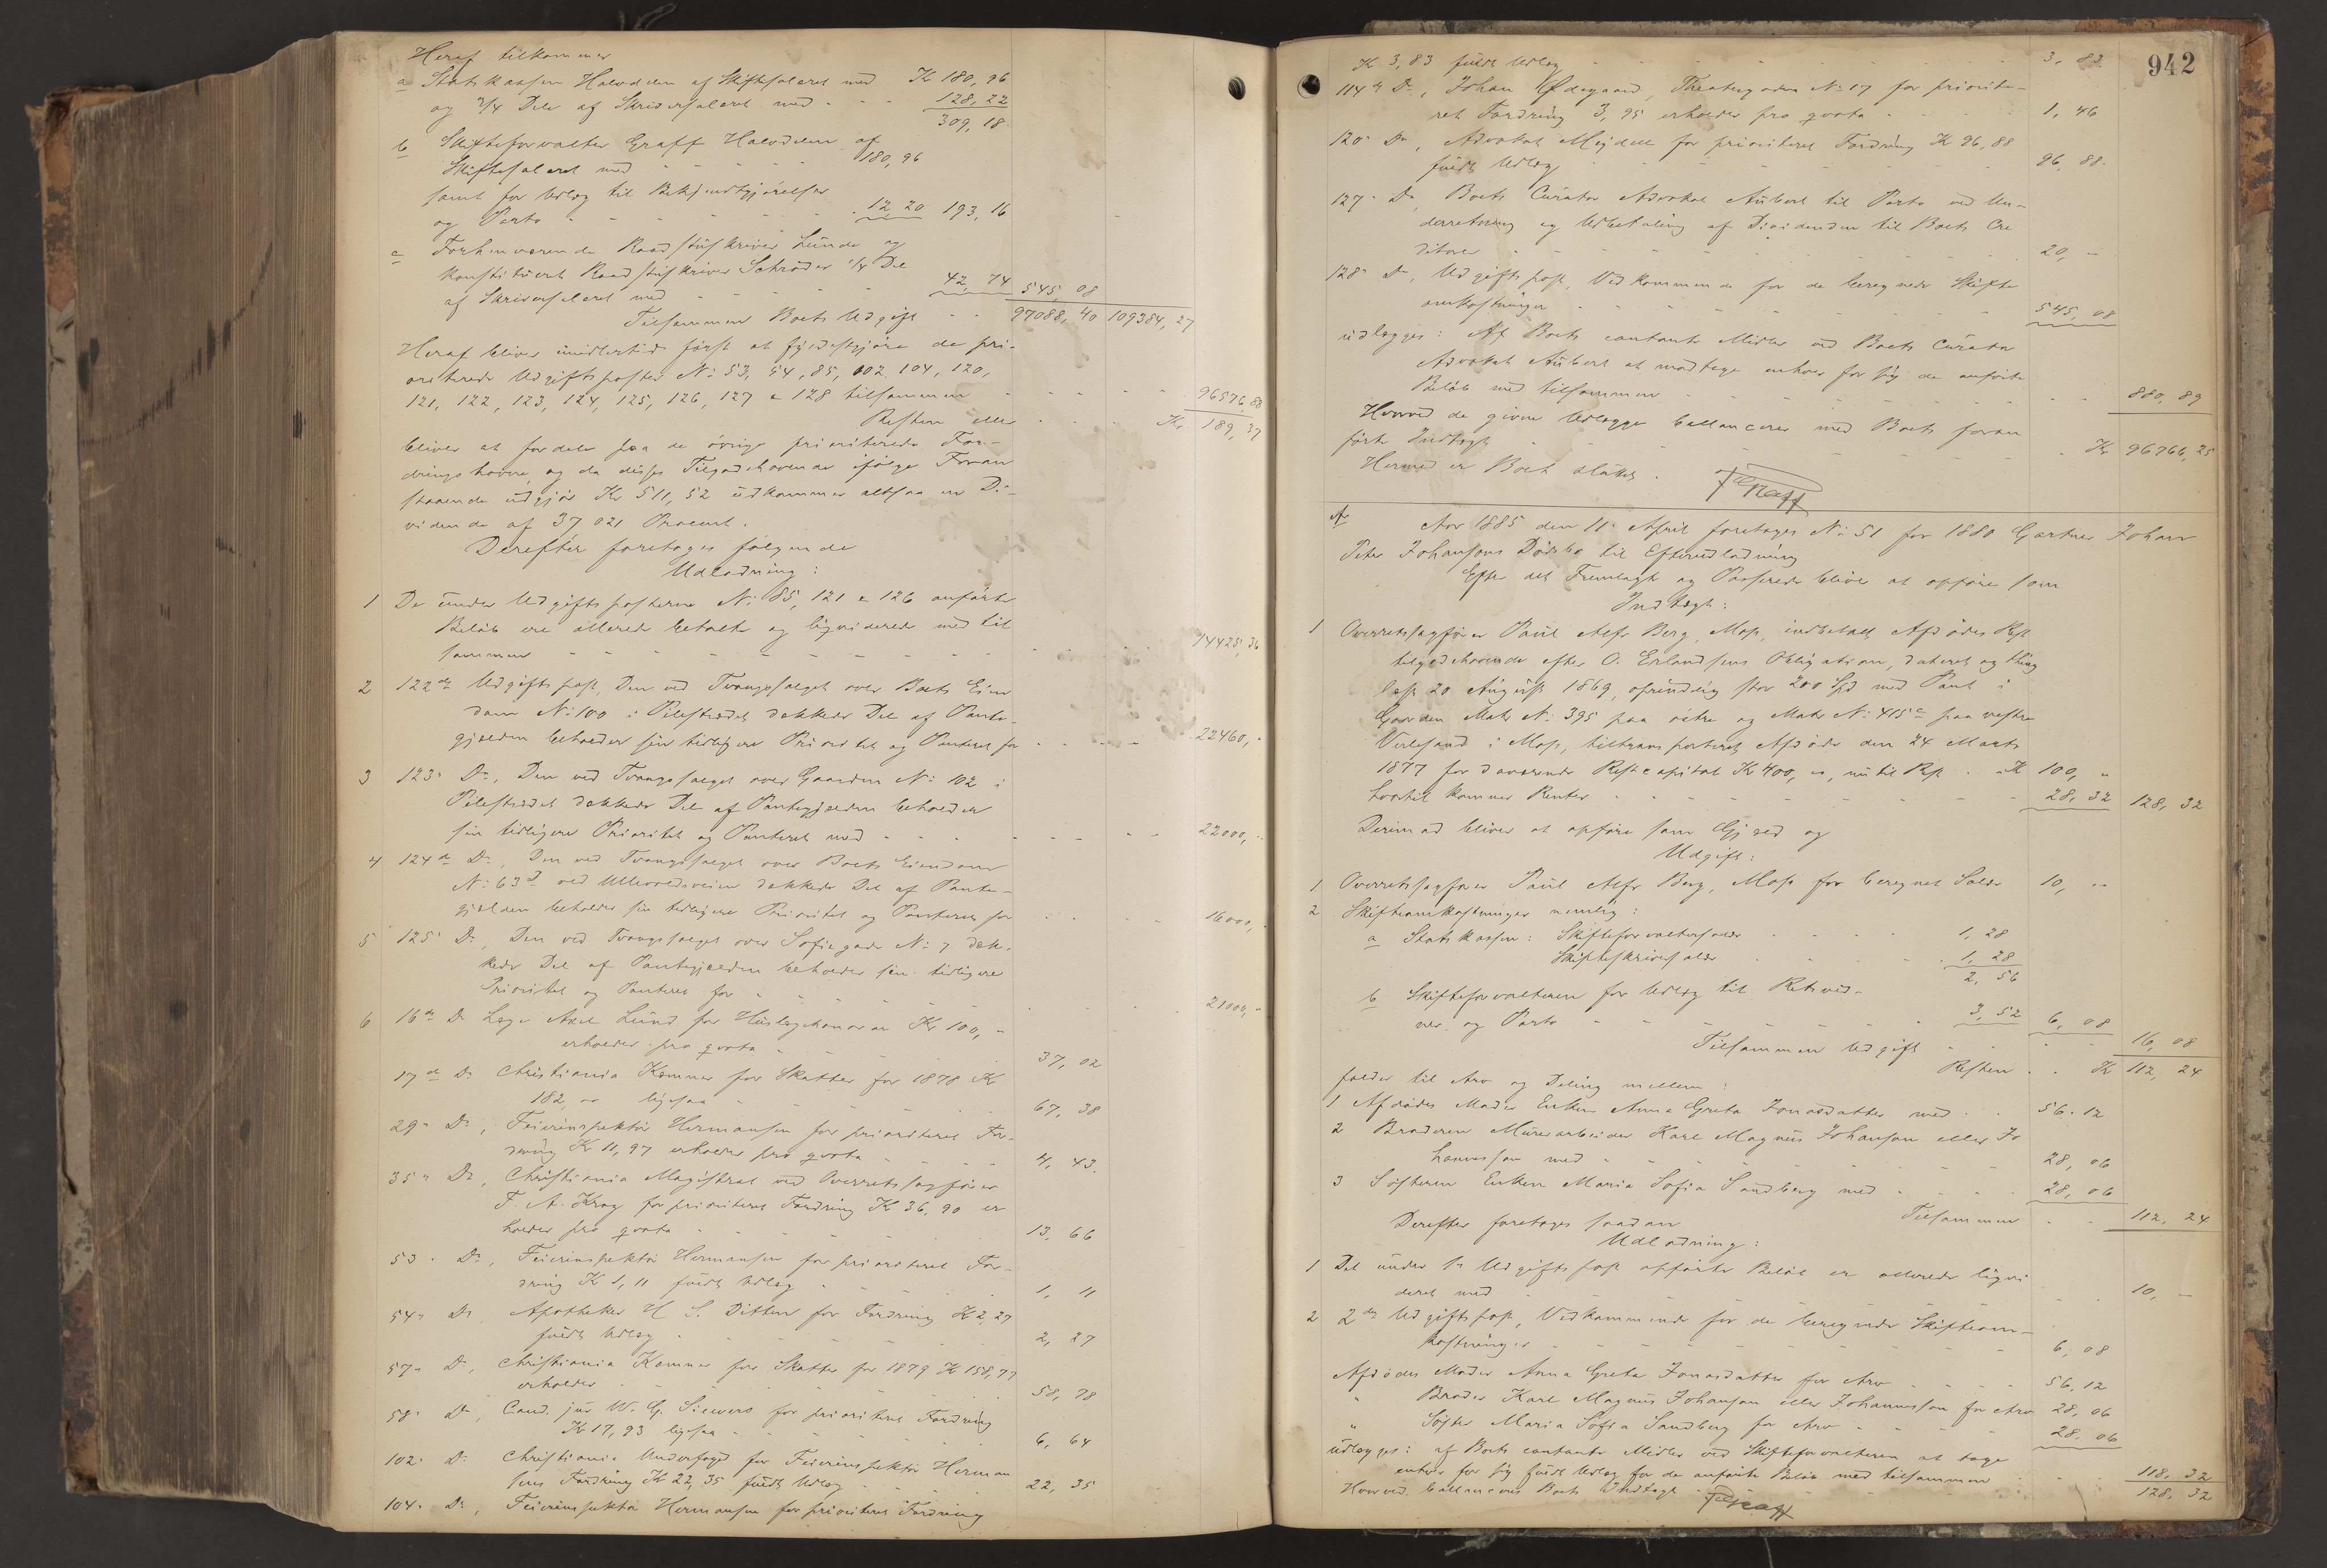 Heraf tilkommer
a Statskassen Halvdelen af Skiftesalæret med Kr 180,96
og 3/4 Dele af Skriversalæret med - - - 128,22
309,18.
b Skifteforvalter Graff Halvdelen af
Skiftesalæret med - - - - 180,96
samt for Udlæg til Bekjendtgjørelser
og Porto - - - - - - 12,20 193,16
c Forhenværende Raadstuskriver Lunde og
konstitueret Raadstuskriver Schrøder 1/4 Del
af Skriversalæret med - - - - 42,74 545,08
Tilsammen Boets Udgift - - 97088,40 109384,27
Heraf bliver imidlertid først at fyldestgjøre de pri-
oriterede Udgiftsposter No 53, 54, 85, 102, 104, 120,
121, 122, 123, 124, 125, 126, 127 & 128 tilsammen - - - - 96576,88
Resten eller - - - - Kr 189,37
bliver at fordele paa de øvrige prioriterede For-
dringshavere, og da disses Tilgodehavende ifølge Foran
staaende udgjør Kr 511,52 udkommer altsaa en Di-
vidende af 37 021 Procent.
Derefter foretoges følgende
Udlodning:
1 De under Udgiftsposterne No 85, 121 & 126 anførte
Beløb ere allerede betalte og ligviderede med til
sammen - - - - - - - - - - 14425,36
2 122de Udgiftspost, Den ved Tvangssalget over Boets Eien
dom No 100 i Pilestrædet dækkede Del af Pante-
gjælden beholder sin tidligere Prioritet og Panteret for - - - - 22460,-
3 123" Do, Den ved Tvangssalget over Gaarden No 102 i
Pilestrædet dækkede Del af Pantegjælden beholder
sin tidligere Prioritet og Panteret med - - - - - - 22000,-
4 124de Do, Den ved Tvangssalget over Boets Eiendom
No 63 d ved Ullevoldsveien dækkede Del af Pante-
gjælden beholder sin tidligere Prioritet og Panteret for - - - - 16000,-
5 125" Do, Den ved Tvangssalget over Sofiegade No 7 dæk-
kede Del af Pantegjælden beholder sin tidligere
Prioritet og Panteret for - - - - - - - 21000,-
6 16de Do Læge Axel Lund for Huslægehonorar Kr 100,-
erholder pro qvota - - - - 37,02
17de Do Christiania Kæmner for Skatter for 1878 Kr
182,00 ligesaa - - - - 67,38
29" Do, Feierinspektør Hermansen for prioriteret For-
dring Kr 11,97 erholder pro qvota - - - - 4,43.
35" Do, Christiania Magistrat ved Overretssagfører
F. A. Krog for prioriteret Fordring Kr 36,90 er
holder pro qvota - - - - 13,66
53" Do, Feierinspektør Hermansen for prioriteret For-
dring Kr 1,11 fuldt Udlæg - - - - 1,11
54" Do Apotheker H. S. Ditten for Fordring Kr 2,27
fuldt Udlæg - - - - 2,27
57" Do, Christiania Kæmner for Skatter for 1879 Kr 158,77
erholder - - - - 58,78
58" Do, Cand. jur W. G. Siewers for prioriteret Fordring
Kr 17,93 ligesaa - - - - 6,64
102" Do Christiania Underfoged for Feierinspektør Herman
sens Fordring Kr 22,35 fuldt Udlæg - - - 22,35
104" Do, Feierinspektør Hermansen for prioriteret Fordring
942
Kr 3,83 fuldt Udlæg - - - - 3,83
114de Do, Johan Ødegaard, Theatergaden No 17 for priorite-
ret Fordring 3,95 erholder pro qvota - - - - 1,46
120" Do, Advokat Mejdell for prioriteret Fordring Kr 96,88
fuldt Udlæg - - - - 96,88.
127" Do, Boets Curator Advokat Aubert til Porto ved Un-
derretning og Udbetaling af Dividenden til Boets Cre
ditorer - - - - 20,-
128" Do, Udgiftspost, Vedkommende for de beregnede Skifte
omkostninger - - - - 545,08
udlægges: Af Boets contante Midler ved Boets Curator
Advokat Aubert at modtage enhver for sig de anførte
Beløb med tilsammen - - - - 880,89
Hvorved de givne Udlægge ballancerer med Boets foran
førte Indtægt - - - - Kr 96766,25
Hermed er Boet sluttet.
FGraff
Aar 1885 den 11 April foretoges No 51 for 1880 Gartner Johan
Peter Johansons Dødsbo til Efterudlodning
Efter det Fremlagte og Passerede bliver at opføre som
Indtægt:
1 Overretssagfører Paul Alfr Berg, Moss, indbetalt Afdødes Rest
tilgodehavende efter O. Erlandsens Obligation, dateret og thing
læst 20 August 1869, oprindelig stor 200 Spd med Pant i
Gaarden Matr No 395 paa østre og Matr No 415 c paa vestre
Verlesand i Moss, tiltransporteret Afdøde den 24 Marts
1877 for daværende Restcapital Kr 400,-, nu til Rest - Kr 100,-
hvortil kommer Renter - - - - 28,32 128,32
Derimod bliver at opføre som Gjæld og
Udgift:
1 Overretssagfører Paul Alfr Berg, Moss for beregnet Salær 10,-
2 Skifteomkostninger nemlig:
a Statskassen: Skifteforvaltersalær - - - 1,28
Skifteskriversalær - - - 1,28
2,56
b Skifteforvalteren for Udlæg til Retsvid-
ner og Porto - - - - 3,52 6,08
Tilsammen Udgift - - - 16,08
Resten - - Kr 112,24
falder til Arv og Deling mellem:
1 Afdødes Moder Enken Anna Greta Jonasdatter med - - 56.12
2 Broderen Murerarbeider Karl Magnus Johanson eller Jo
hannesson med - - - - 28,06
3 Søsteren Enken Maria Sofia Sandberg med - - - 28,06
Tilsammen - - 112,24
Derefter foretoges saadan
Udlodning:
1 Det under 1ste Udgiftspost opførte Beløb er allerede ligvi
deret med - - - - 10,-
2 2den Udgiftspost, Vedkommende for de beregnede Skifteom-
kostninger - - - - 6,08
Afdødes Moder Anna Greta Jonasdatter for Arv - - - 56,12
" Broder Karl Magnus Johanson eller Johannesson for Arv 28,06
" Søster Maria Sofia Sandberg for Arv - - - 28,06
udlægges: af Boets contante Midler ved Skifteforvalteren at tage
enhver for sig fuldt Udlæg for de anførte Beløb med tilsammen - - 118,32
Hvorved ballancerer Boets Indtægt - - - 128,32
FGraff